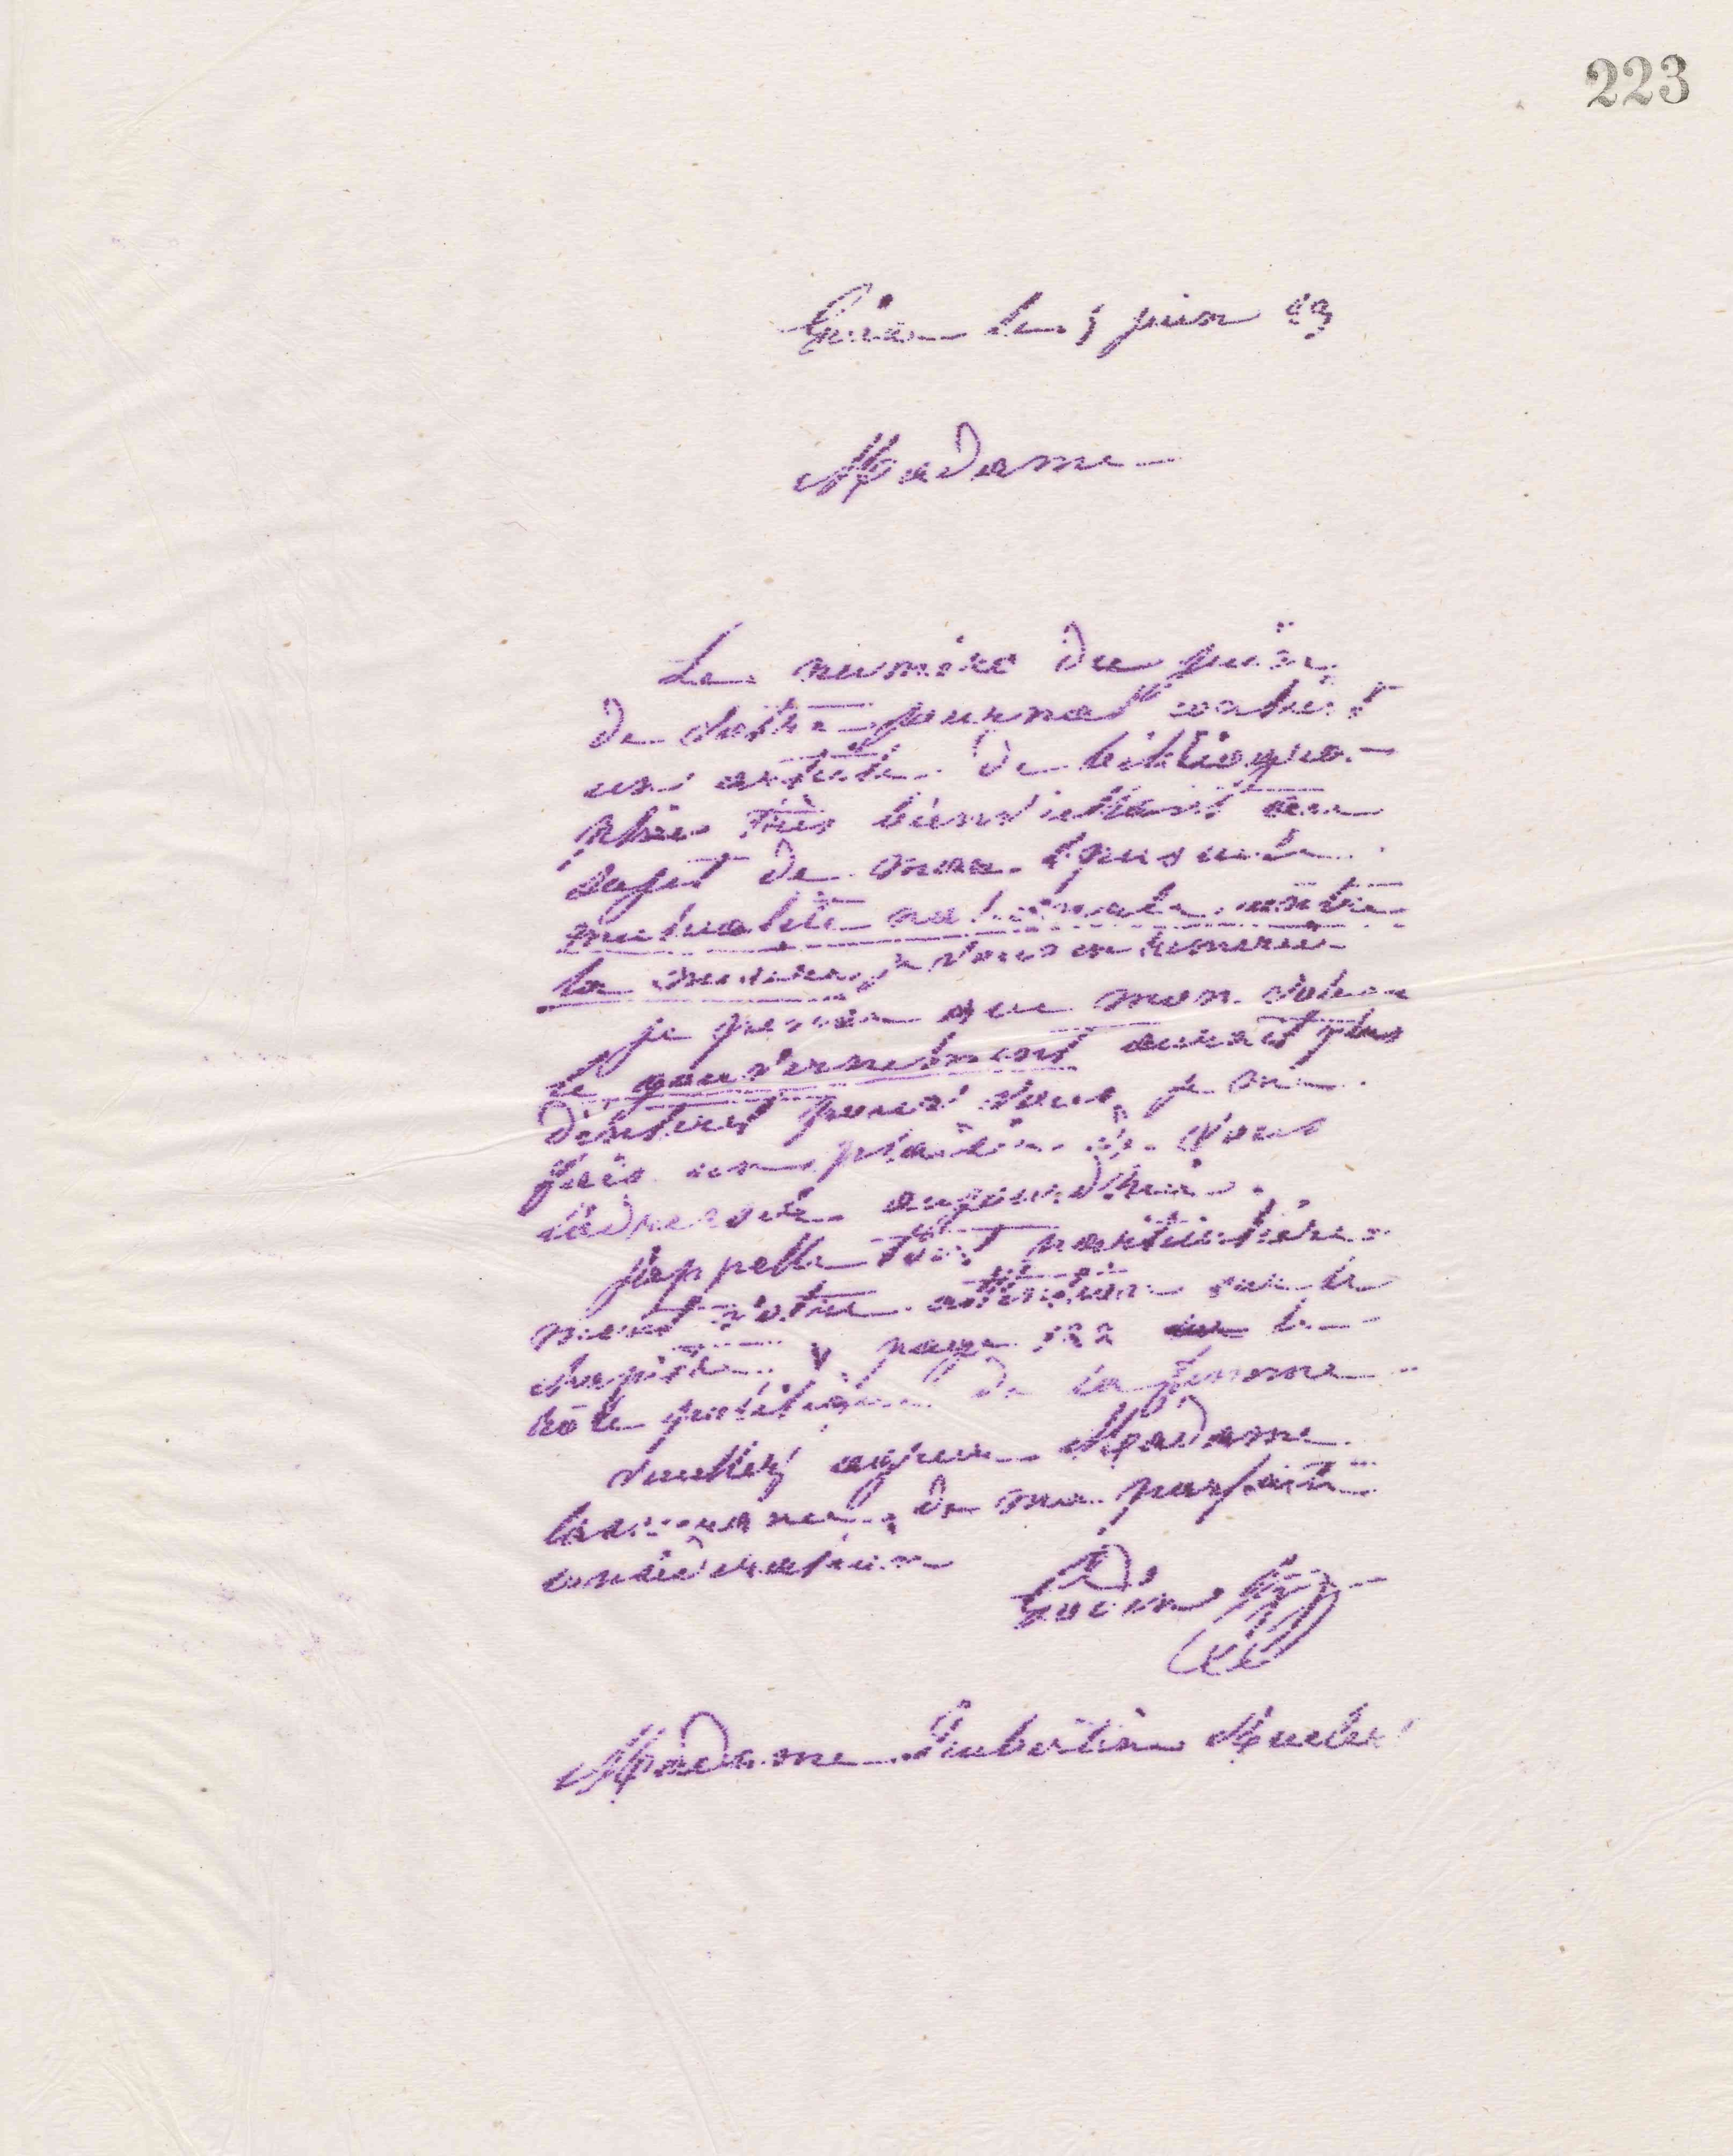 223
Guise le 5 juin 83
Madame
Le numéro de juin
de votre journal contient
un article de bibliogra-
phie très bienveillant au
sujet de ma brochure
mutualité nationale contre
la misère, je vous en remercie
je pense que mon volume
le gouvernement aurait plus
d'intérêt pour vous, je me
fais un plaisir de vous
l'adresser aujourd'hui.
J'appelle tout particulière-
ment votre attention sur le
chapitre V. page 122 le
rôle politique de la femme
Veuillez agréer Madame
l'assurance de ma parfaite
considération
Godin
Madame Hubertine Auclert